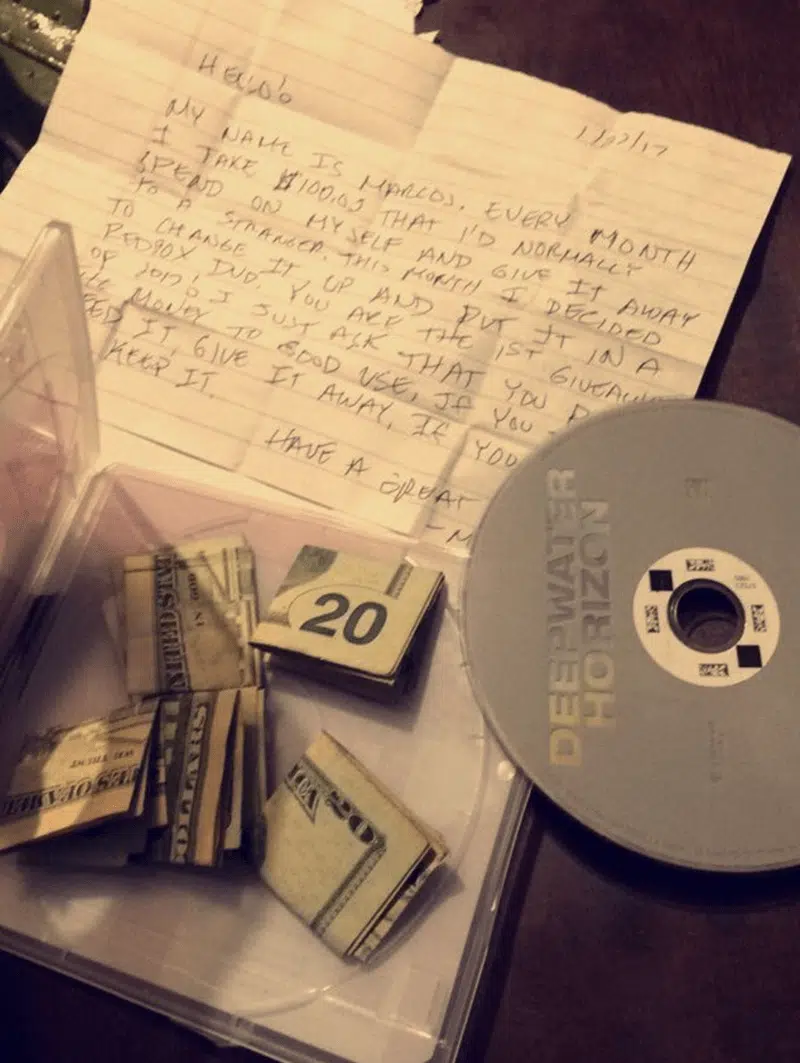 HELLO!
MY NAME IS MARCOS. EVERY MONTH
I TAKE $100.00 THAT I'D NORMALLY
SPEND ON MYSELF AND GIVE IT AWAY
TO A STRANGER. THIS MONTH I DECIDED
TO CHANGE IT UP AND PUT IT IN A
REDBOX DVD. YOU ARE THE 1ST
OF 2017! I JUST ASK THAT YOU
MONEY TO GOOD USE, IF YOU
IT GIVE IT AWAY, IF YOU
KEEP IT.
HAVE A GREAT
DEEPWATER
HORIZON
IN GOD
20
WE TRUST
20